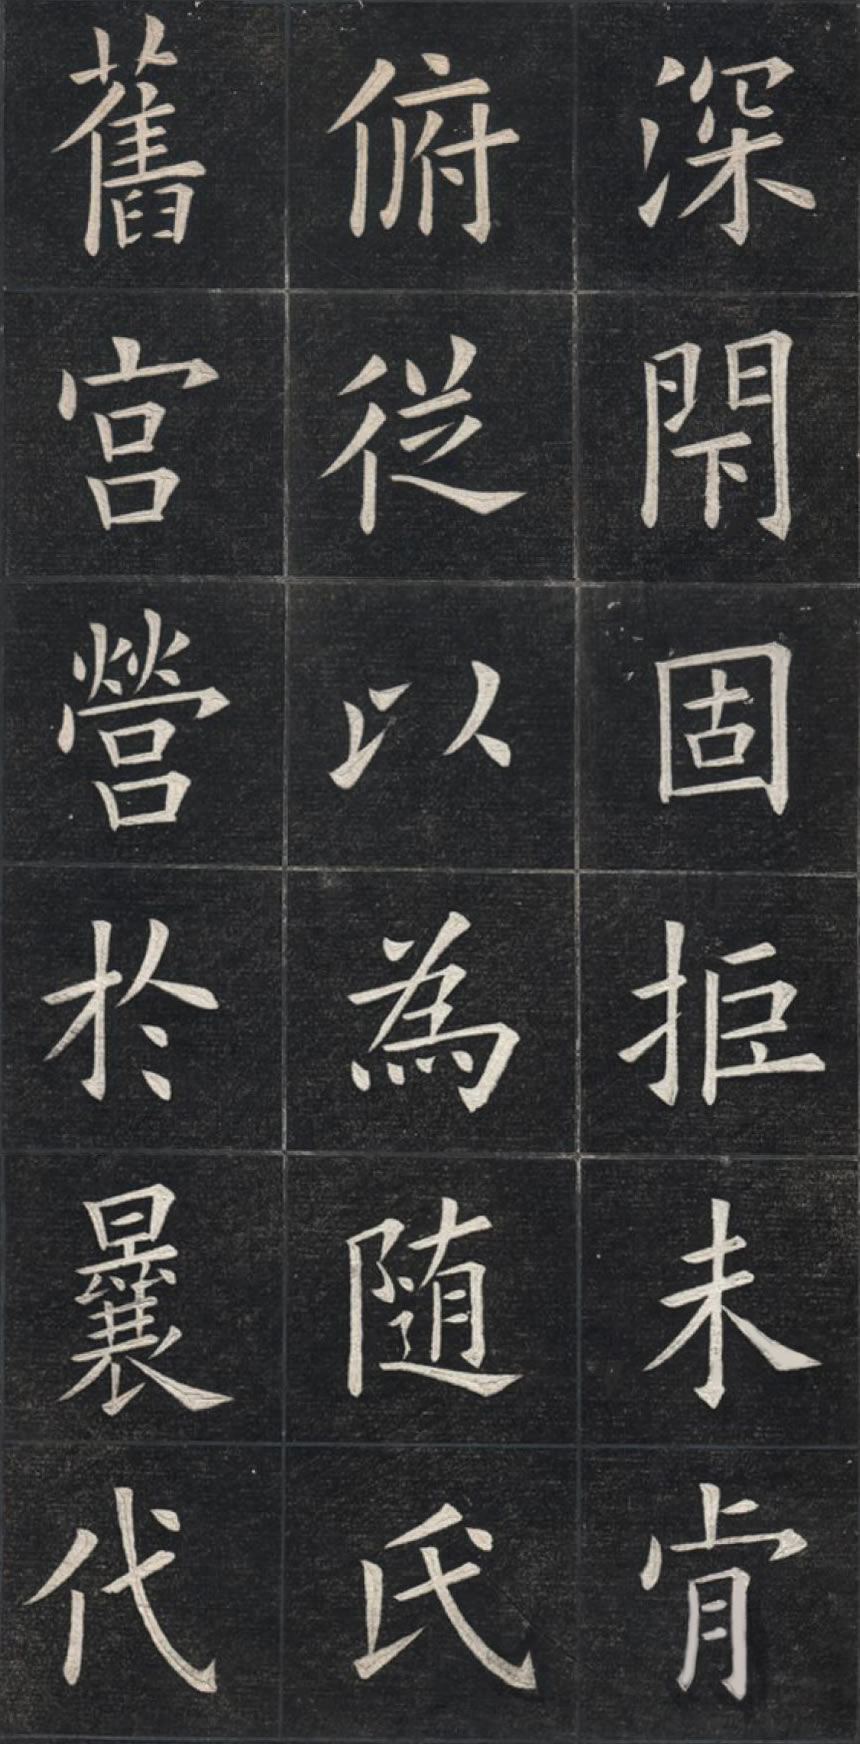 深閇固拒未肯
俯從以為随氏
舊宮營於曩代